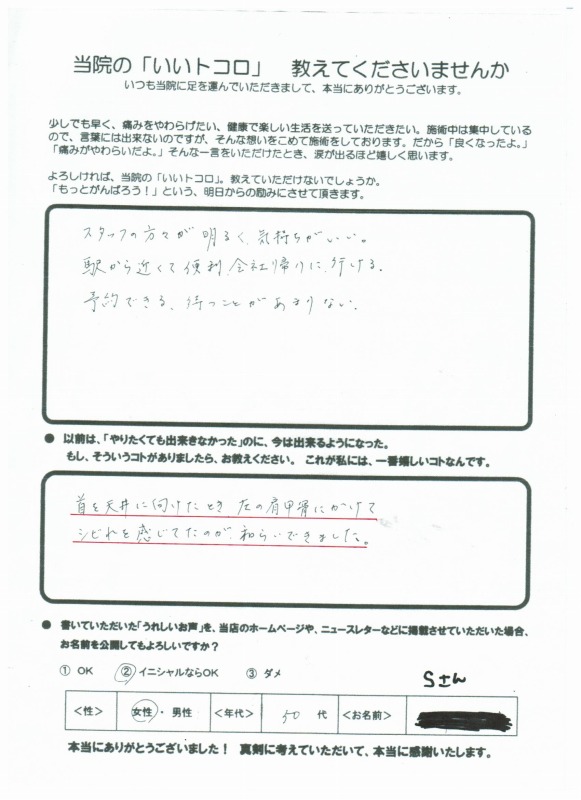 当院の「いいトコロ」　教えてくださいませんか
いつも当院に足を運んでいただきまして、本当にありがとうございます。
少しでも早く、痛みをやわらげたい、健康で楽しい生活を送っていただきたい。施術中は集中している
ので、言葉には出来ないのですが、そんな想いをこめて施術をしております。だから「良くなったよ。」
「痛みがやわらいだよ。」そんな一言をいただけたとき、涙が出るほど嬉しく思います。
よろしければ、当院の「いいトコロ」。教えていただけないでしょうか。
「もっとがんばろう！」という、明日からの励みにさせて頂きます。
スタッフの方々が明るく、気持ちがいい。
駅から近くて便利、会社帰りに行ける。
予約できる、待つことがあまりない。
● 以前は、「やりたくても出来きなかった」のに、今は出来るようになった。
もし、そういうコトがありましたら、お教えください。 これが私には、一番嬉しいコトなんです。
首を天井に向けたとき、左の肩甲骨にかけて
シビれを感じてたのが、和らいできました。
● 書いていただいた「うれしいお声」を、当店のホームページや、ニュースレターなどに掲載させていただいた場合、
お名前を公開してもよろしいですか？
① OK　② イニシャルならOK　③ ダメ
Sさん
＜性＞ 女性・男性 ＜年代＞ 50 代 ＜お名前＞
本当にありがとうございました！ 真剣に考えていただいて、本当に感謝いたします。